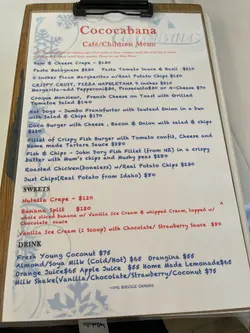 Cococabana
Café/Children Menu
Ham & Cheese Crepe - $120
Pasta Bolognese $120 Pasta Tomato Sauce & Basil $110
5 inches Pizza Margheritas w/Real Potato Chips $120
CRISPY CRUST, PIZZA NAPOLETANA 9 inches $160
Margherita-add Pepperoni$20, Prosciutto$20 or 4-Cheese $70
Croque Monsieur, French Cheese on Toast with Grilled
Tomatoe Salad $140
Hot Dogs - Jumbo Frankfurter with Sauteed Onion in a Bun
with Salad & Chips $170
Coco Burger with Cheese, Bacon & Onion with salad & chips
$180
Fillet of Crispy Fish Burger with Tomato confit, Cheese and
Home made Tartare Sauce $180
Fish & Chips - John Dory Fish Fillet (from NZ) in a crispy
batter with Mum's chips and Mushy peas $180
Roasted Chicken(boneless) w/Real Potato Chips $180
Just Chips(Real Potato from Idaho) $80
SWEETS
Nutella Crepe - $120
Banana Split $120
whole sliced Banana w/ Vanilla Ice Cream & whipped Cream, topped w/
Chocolate sauce
Vanilla Ice Cream (1 Scoop) with Chocolate/ Strawberry Sauce $80
DRINK
Fresh Young Coconut $75
Almond/Soya Milk (Cold/Hot) $65 Orangina $65
Orange Juice$65 Apple Juice $55 Home Made Lemonade$65
Milk Shake(Vanilla/Chocolate/Strawberry/Coconut $75
+10% SERVICE CHARGE